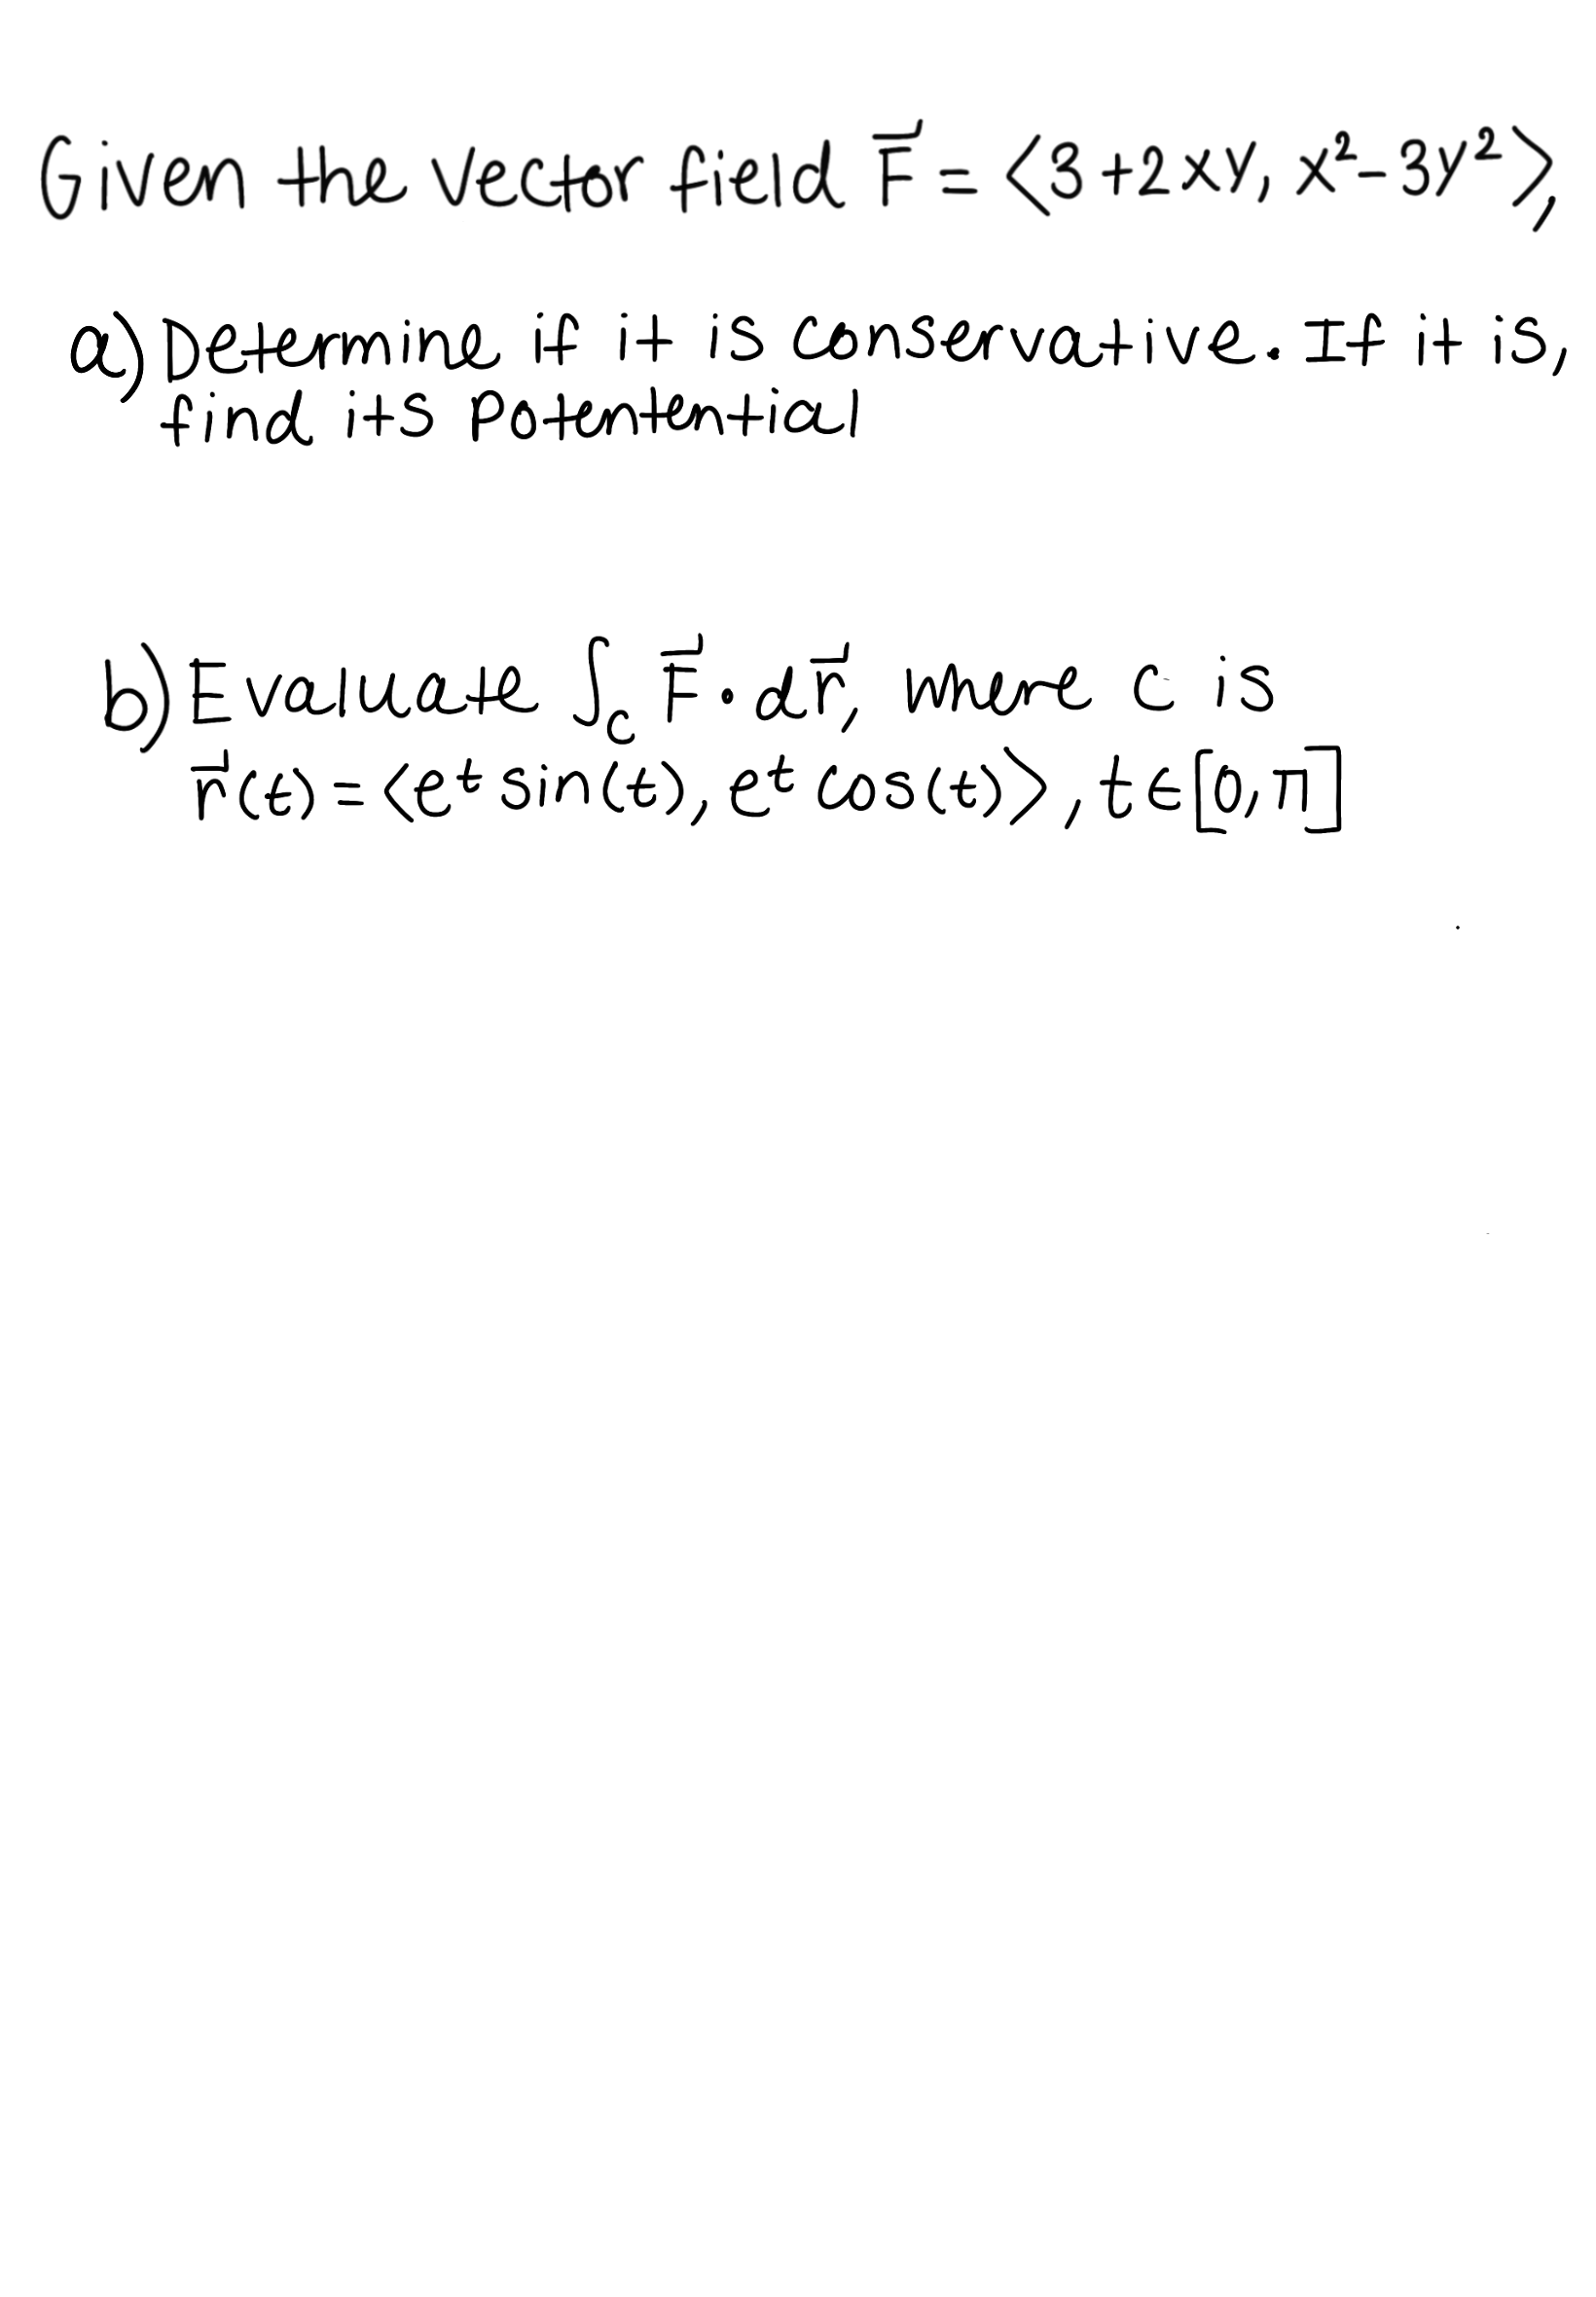 Given the vector field F⃗ = ⟨3+2xy, x²-3y²⟩,
a) Determine if it is conservative. If it is,
find its potentential
b) Evaluate ∫_C F⃗ · dr⃗, where c is
r⃗(t) = ⟨e^t sin(t), e^t cos(t)⟩, t∈[0,π]